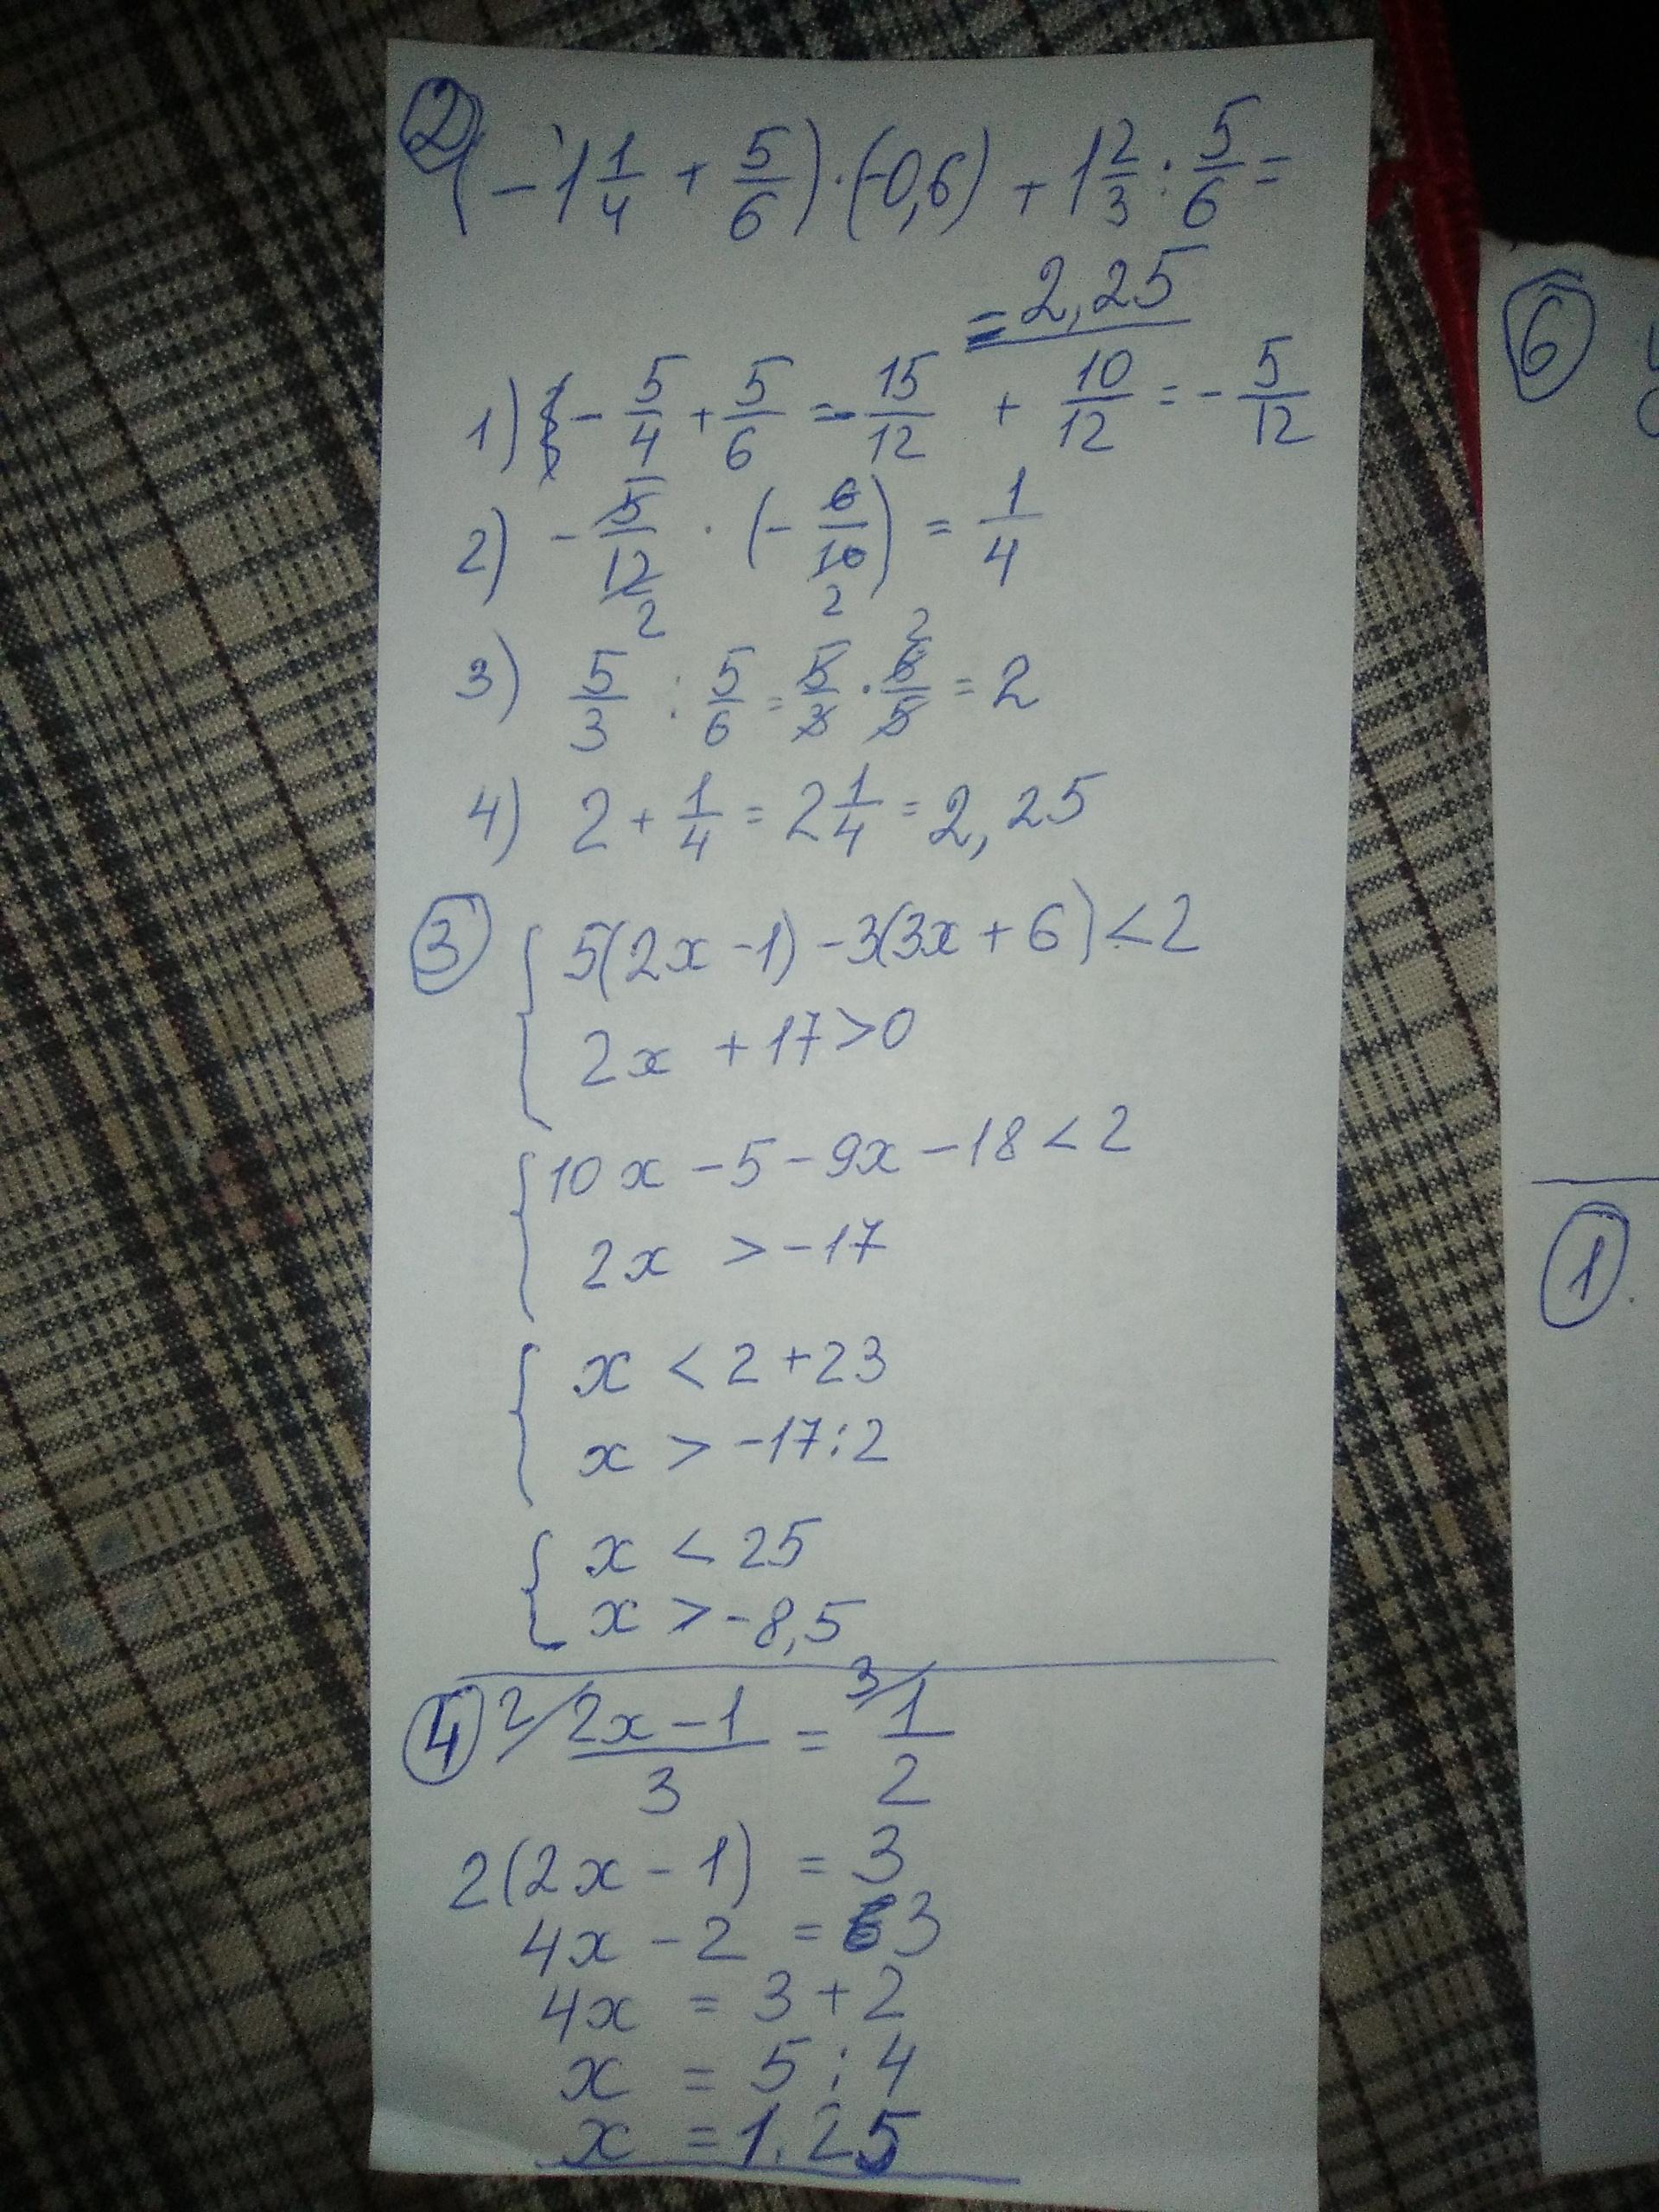 ② (-1 1/4 + 5/6) · (-0,6) + 1 2/3 : 5/6 =
= 2,25
1) - 5/4 + 5/6 = - 15/12 + 10/12 = - 5/12
2) - 5/12 · (- 6/10) = 1/4
2 2
3) 5/3 : 5/6 = 5/3 · 6/5 = 2
2
4) 2 + 1/4 = 2 1/4 = 2,25
③ { 5(2x - 1) - 3(3x + 6) < 2
2x + 17 > 0
{ 10x - 5 - 9x - 18 < 2
2x > -17
{ x < 2 + 23
x > -17 : 2
{ x < 25
x > -8,5
④ 2/ 2x - 1 / 3 = 3/ 1/2
2(2x - 1) = 3
4x - 2 = 3
4x = 3 + 2
x = 5 : 4
x = 1.25
⑥
①